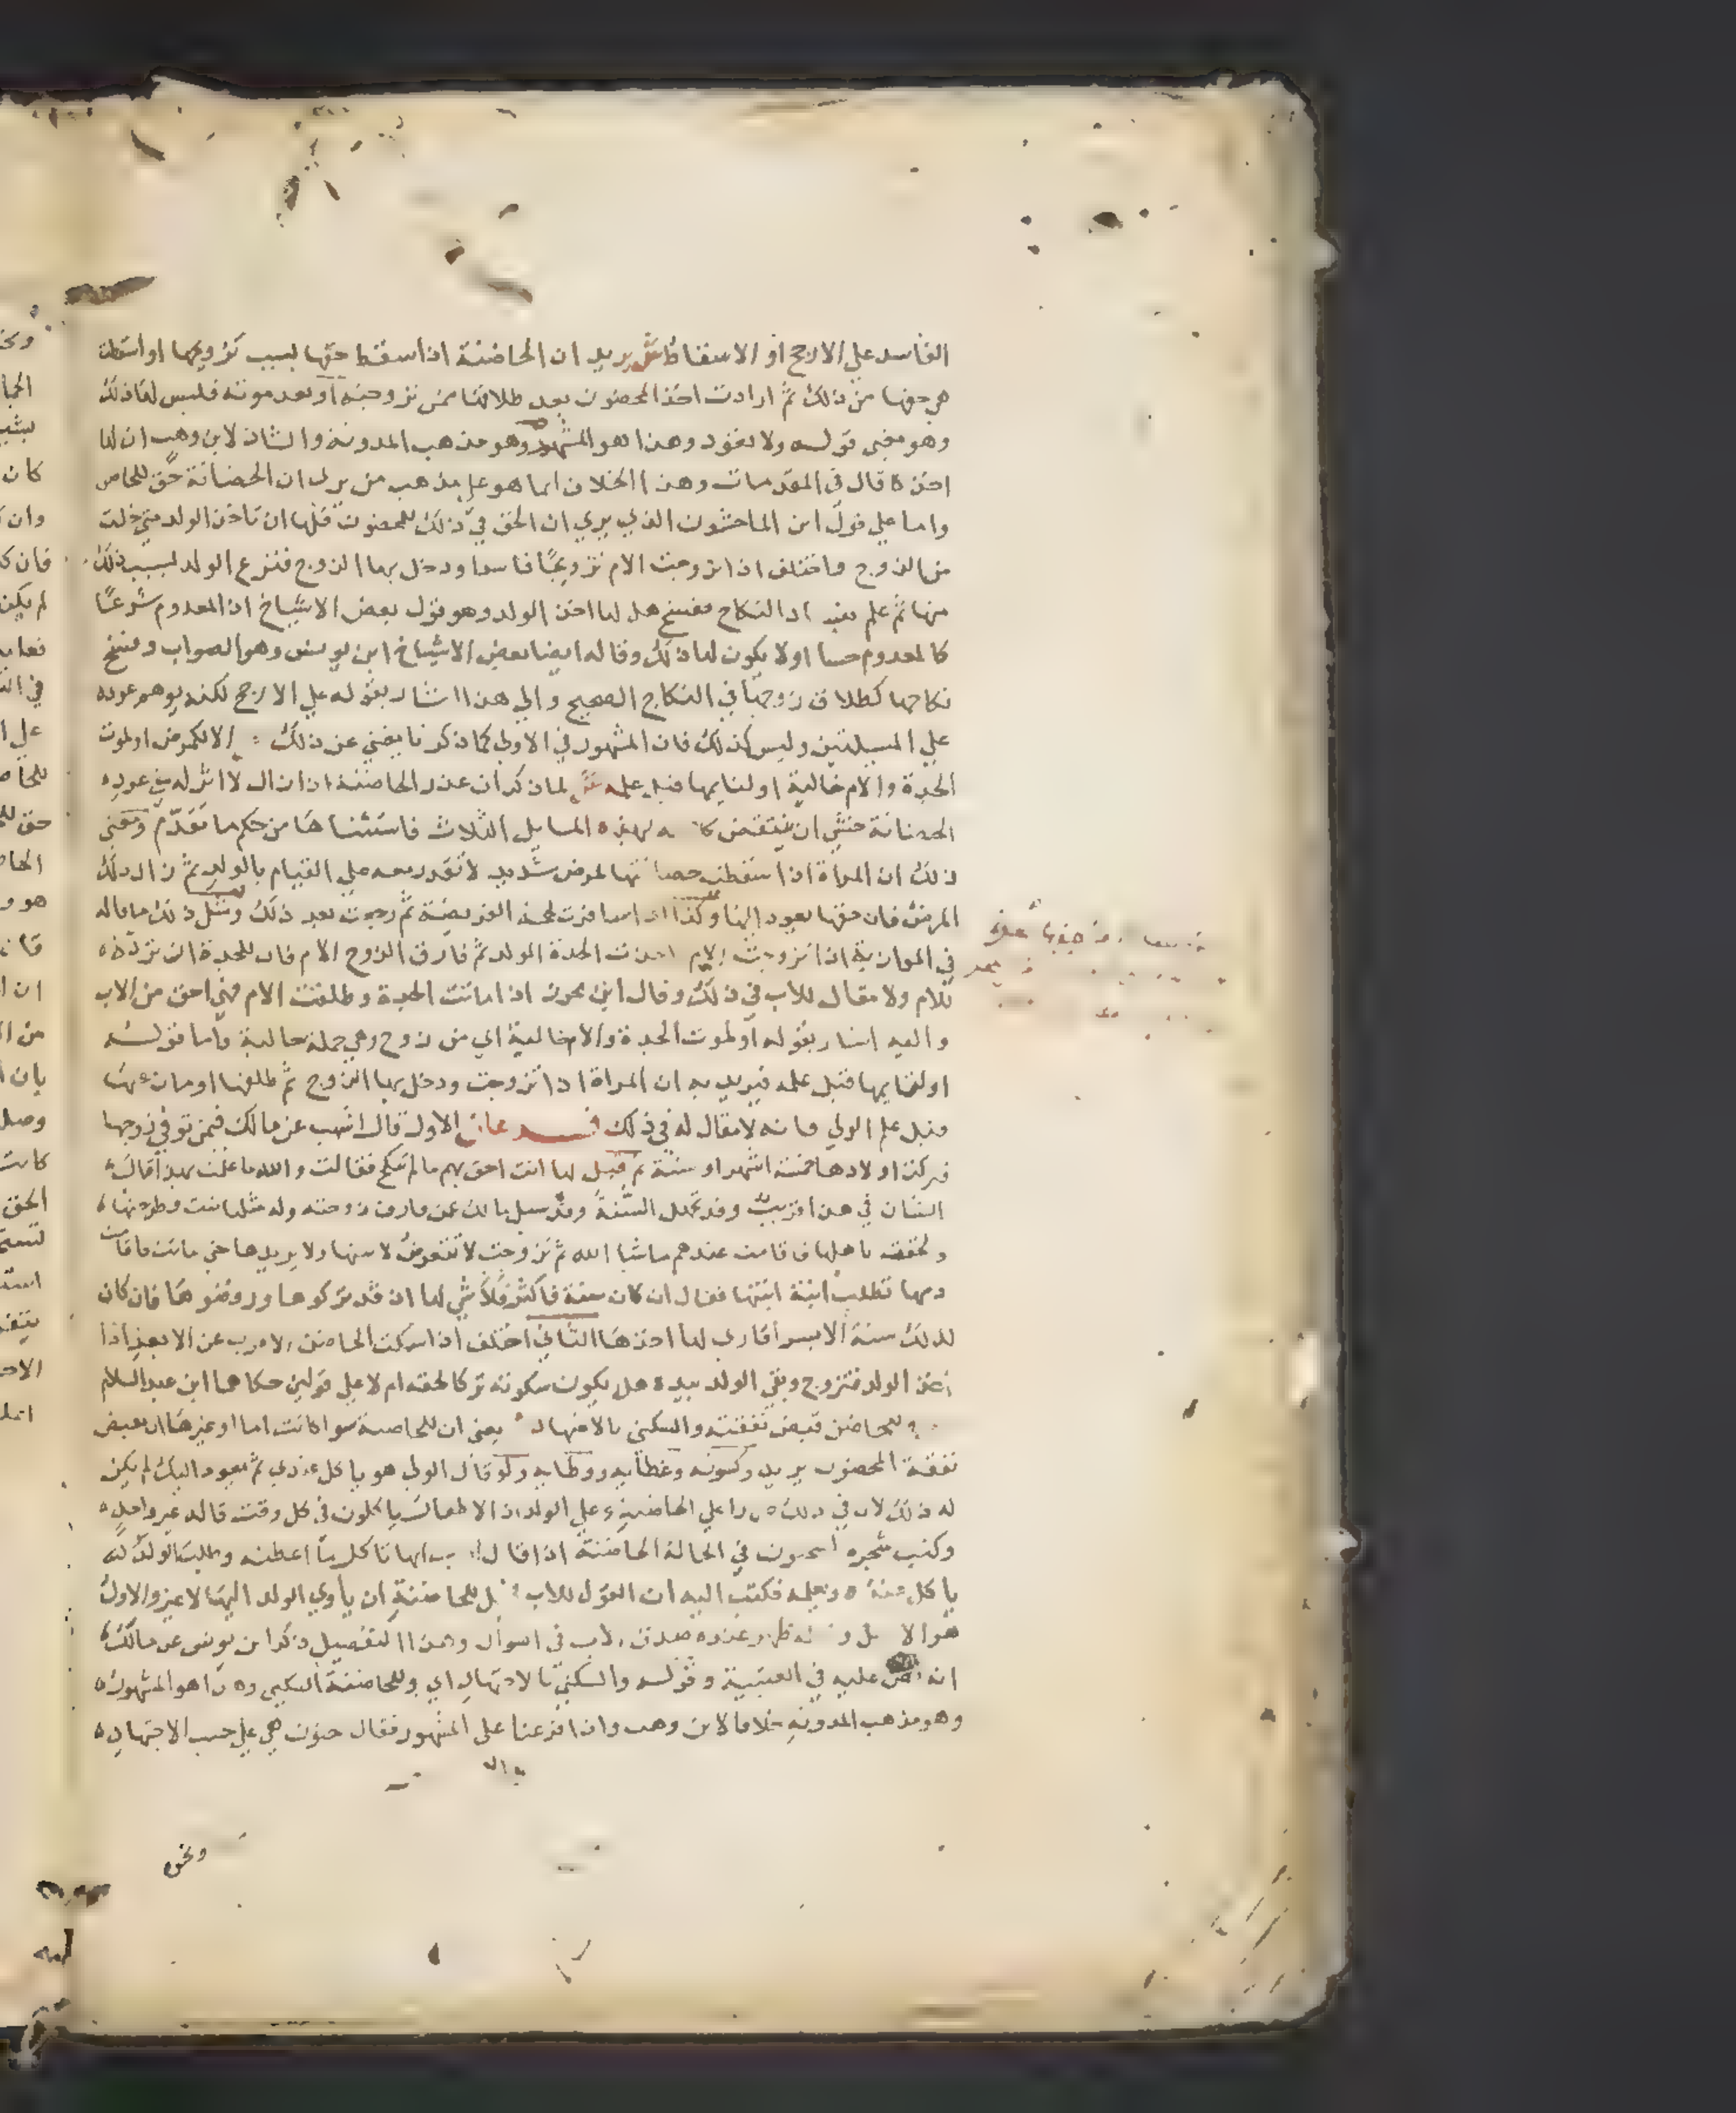 الفاسد علي الارجح او الاسقاط ش يريد ان الحاضنة اذا سقط حقها بسبب تزويجها او اسقطت
هي حقها من ذلك ثم ارادت اخذ المحضون بعد طلاقها ممن تزوجته او بعد موته فليس لها ذلك
وهو معني قوله ولا تعود وهذا هو المشهور وهو مذهب المدونة والشاذ لابن وهب ان لها
اخذه قال في المقدمات وهذا الخلاف انما هو علي مذهب من يري ان الحضانة حق للحاضن
واما علي قول ابن الماجشون الذي يري ان الحق في ذلك للمحضون فلها ان تاخذ الولد متي خلت
من الزوج واختلف اذا تزوجت الام تزويجا فاسدا ودخل بها الزوج فنزع الولد بسبب ذلك
منها ثم علم بفساد النكاح ففسخ هل لها اخذ الولد وهو قول بعض الاشياخ اذ المعدوم شرعا
كالمعدوم حسا او لا يكون لها ذلك وقاله ايضا بعض الاشياخ ابن يونس وهو الصواب وفسخ
نكاحها كطلاق زوجها في النكاح الصحيح والي هذا اشار بقوله علي الارجح لكنه يوهم عوده
علي المسيلتين وليس كذلك فان المشهور في الاولي كما ذكرنا يغني عن ذلك الا لكمرض او لموت
الجدة والام خالية او لتايمها قبل علمه ش لما ذكر ان عذر الحاضنة اذا زال لا اثر له في عوده
الحضانة خشي ان ينتقض كلامه بهذه المسايل الثلاث فاستثناها من حكم ما تقدم ومعني
ذلك ان المراة اذا سقطت حضانتها لمرض شديد لا تقدر معه علي القيام بالولد ثم زال ذلك
المرض فان حقها يعود اليها وكذا اذا سافرت لحجة الفريضة ثم رجعت بعد ذلك ومثل ذلك ما قاله
في الموازية اذا تزوجت الام اخذت الجدة الولد ثم فارق الزوج الام فان للجدة ان ترده
للام ولا مقال للاب في ذلك وقال ابن محرز اذا ماتت الجدة وطلقت الام فهي احق من الاب
واليه اشار بقوله او لموت الجدة والام خالية اي من زوج وهي جملة حالية واما قوله
او لتايمها قبل علمه فيريد به ان المراة اذا تزوجت ودخل بها الزوج ثم طلقها او مات عنها
قبل علم الولي فانه لا مقال له في ذلك فرعان الاول قال اشهب عن مالك فيمن توفي زوجها
فتركت اولادها خمسة اشهر او سنة ثم قيل لها انت احق بهم ما لم تنكح فقالت والله ما علمت بهذا قال
الشان في هذا قريب وقد تجهل السنة وقد سيل مالك عمن فارق زوجته وله منها بنت وطرحتها
ولحقت باهلها فاقامت عندهم ما شا الله ثم تزوجت لا تتعرض لابنتها ولا يريدها حتي ماتت فقامت
امها تطلب ابنة ابنتها فقال ان كان سنة فاكثر فلا شي لها اذ قد تركوها ورفضوها فان كان
لذلك سنة الايسر فاري لها اخذها الثاني اختلف اذا سكت الحاضن الاقرب عن الابعد اذا
اخذ الولد فتزوج وبقي الولد بيده هل يكون سكوته تركا لحقه ام لا علي قولين حكاهما ابن عبد السلام
وللحاضن قبض نفقته والسكني بالاجتهاد يعني ان للحاضنة سوا كانت اما او غيرها ان تقبض
نفقة المحضون يريد وكسوته وغطايه ووطايه ولو قال الولي هو ياكل عندي ثم يعود اليك لم يكن
له ذلك لان في ذلك ضررا علي الحاضنة وعلي الولد اذ الاطفال ياكلون في كل وقت قاله غير واحد
وكتب شجرة لسحنون في الخالة الحاضنة اذا قال الاب انها تاكل ما اعطيه وطلب الولد
ياكل عنده ويعلمه فكتب اليه ان القول للاب فجعل للحاضنة ان ياوي الولد اليها لا غير والاول
هو الاصل ظهر عنده صدق الاب في السوال وهذا التفصيل ذكر ابن يونس عن مالك
انه نص عليه في العتبية وقوله والسكني بالاجتهاد اي وللحاضنة السكني وهذا هو المشهور
وهو مذهب المدونة خلافا لابن وهب واذا فرعنا علي المشهور فقال سحنون هي علي حسب الاجتهاد
ونحوه